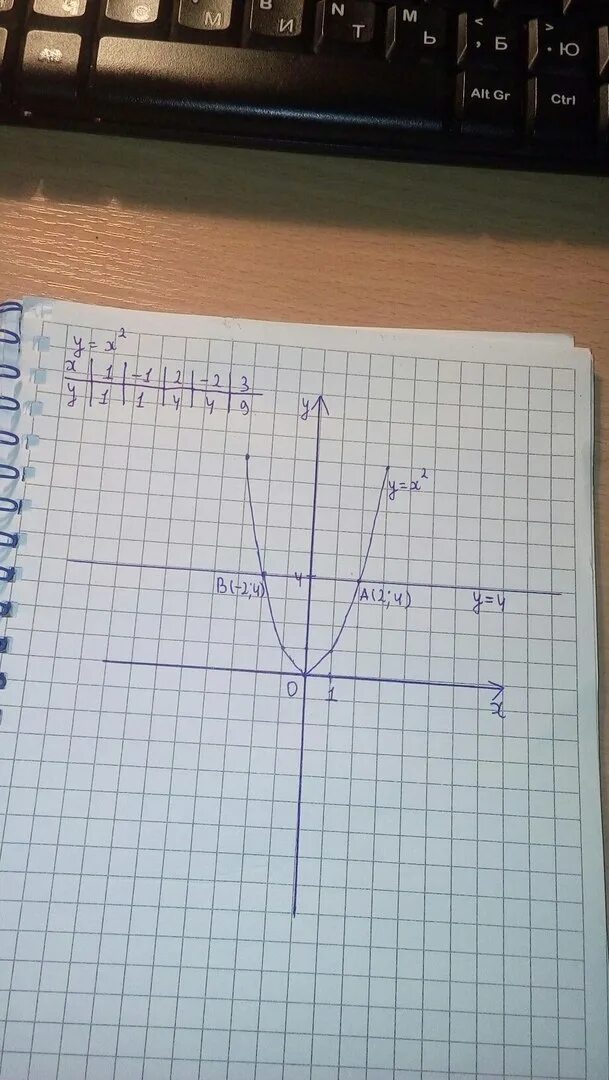 М И Т Ь Б Ю
B N M < >
, .
Alt Gr Ctrl
y = x²
x | 1 | -1 | 2 | -2 | 3
y | 1 | 1 | 4 | 4 | 9
y
y=x²
4
B(-2;4) A(2;4) y=4
0 1 x